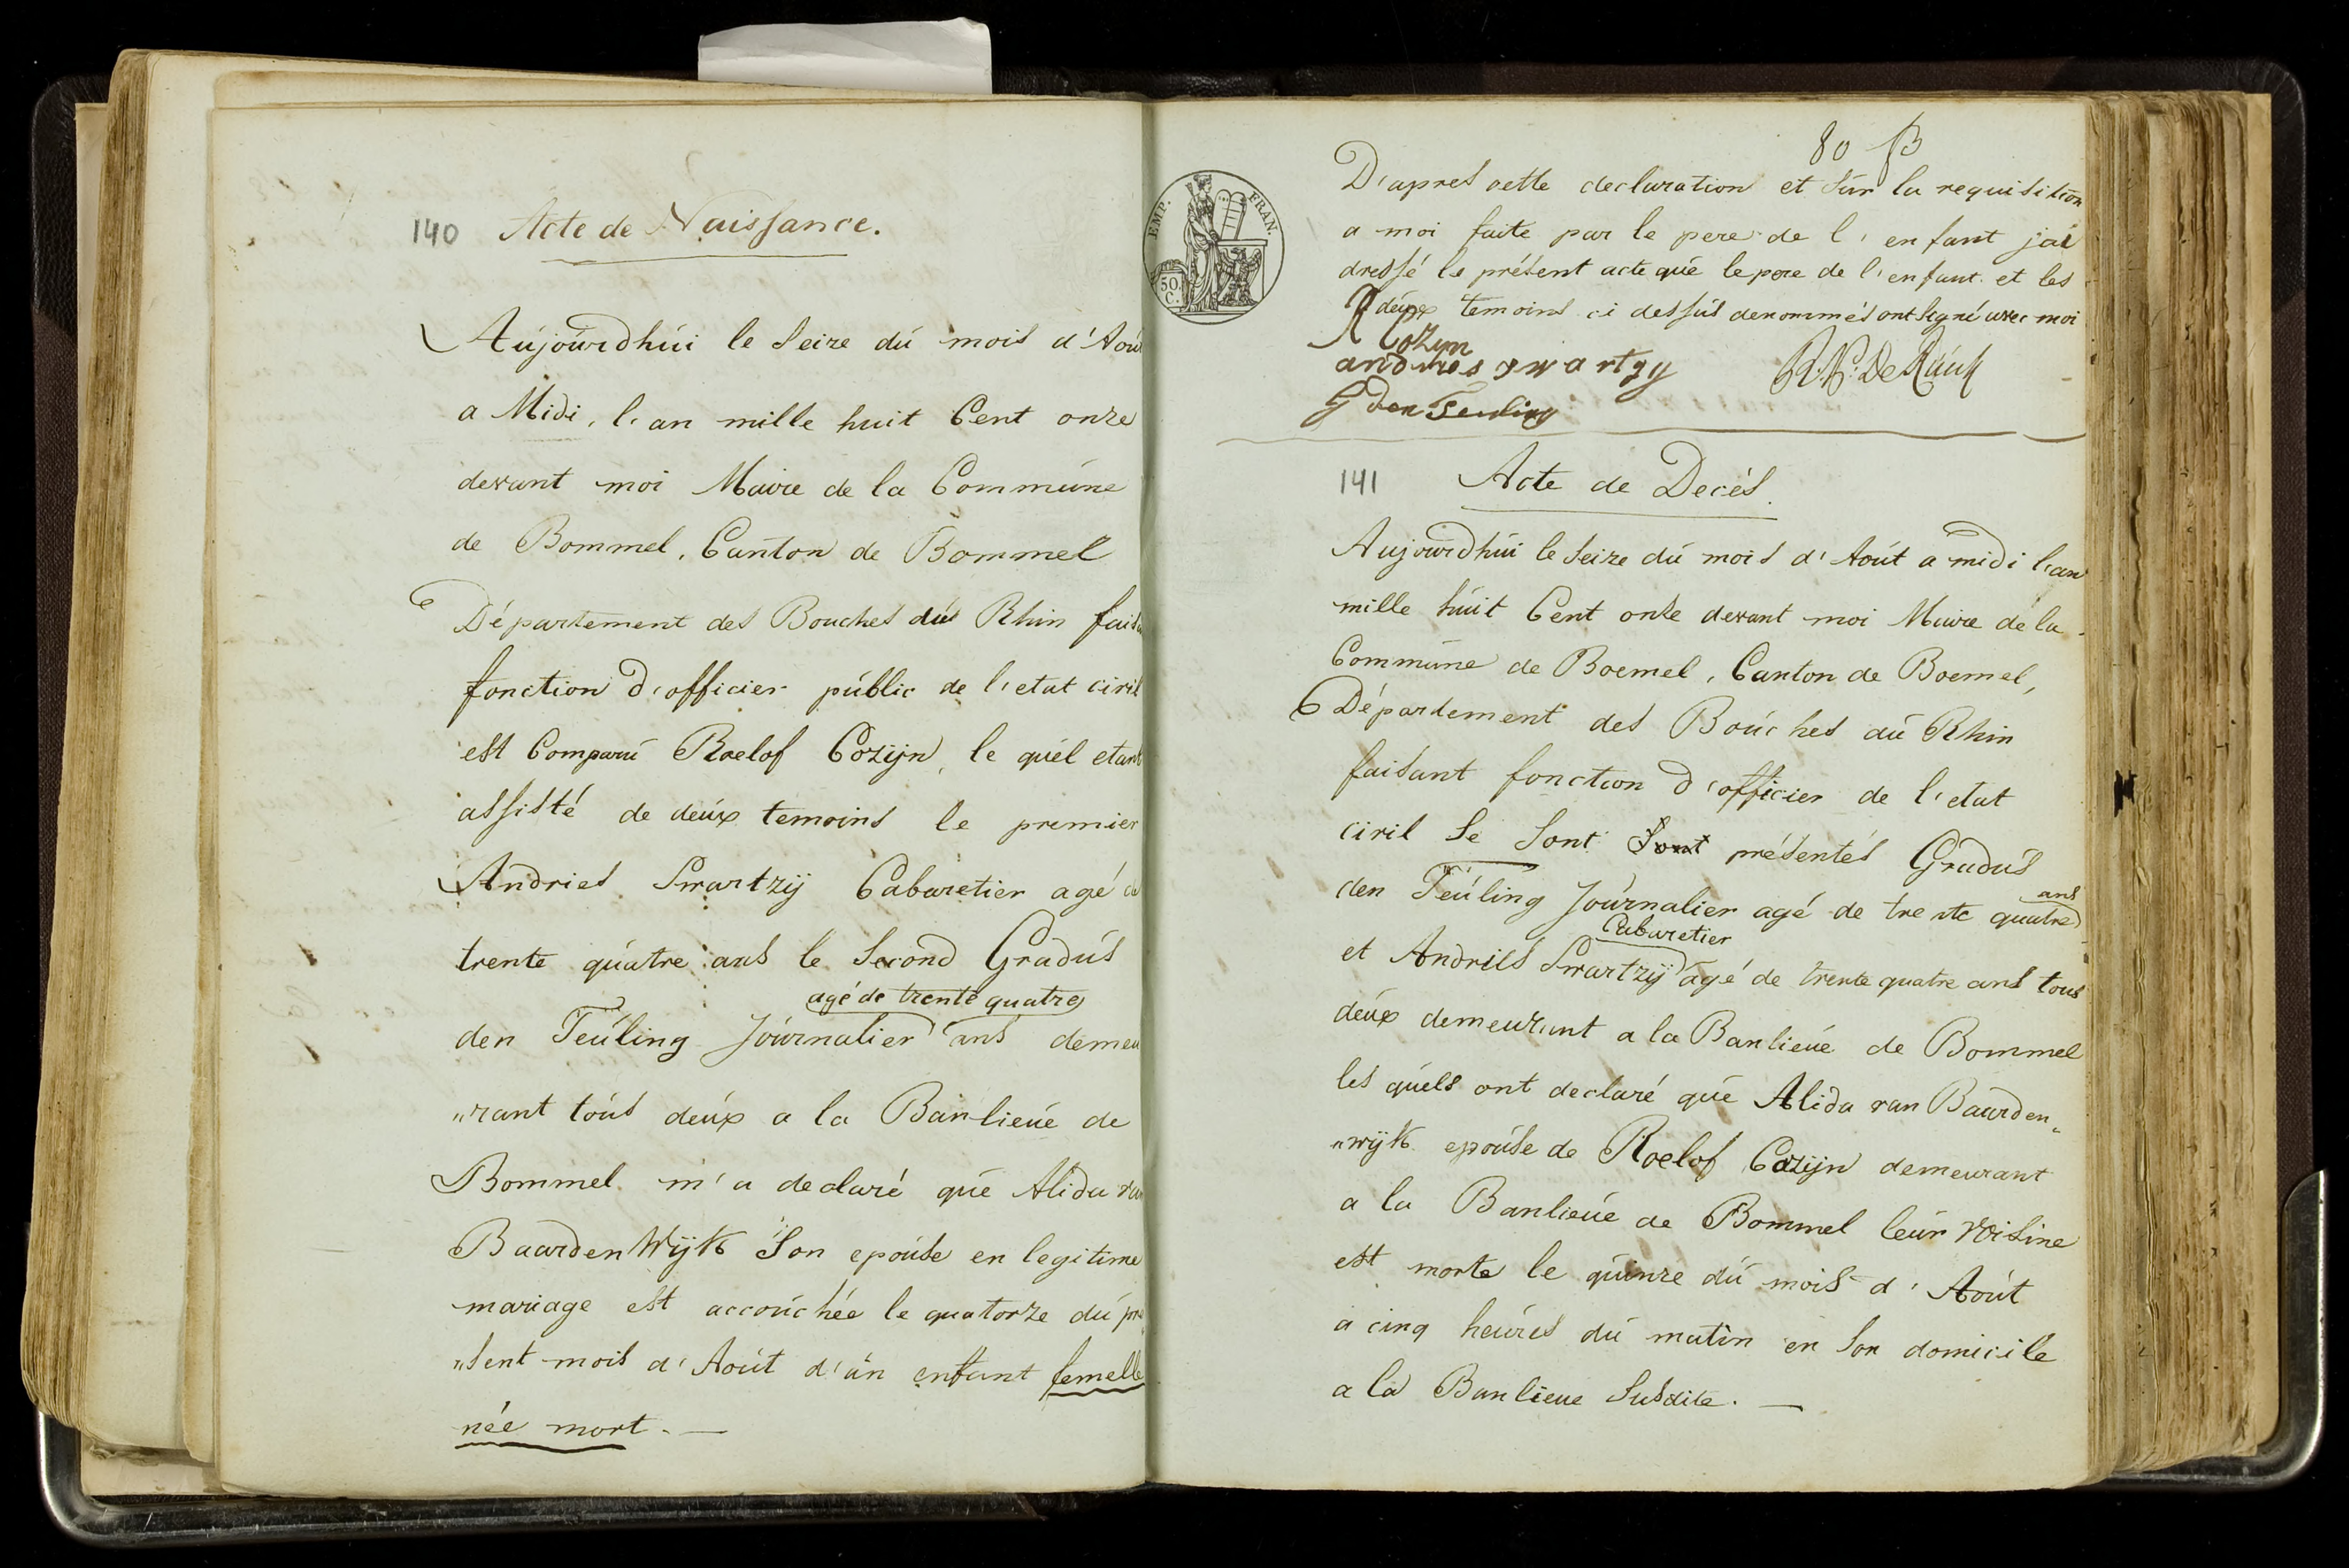 140 Acte de Naissance.
Aujourdhúi le Seize dú mois d'Aoú
a Midi, l'an mille huit Cent onze
devant moi Maire de la Commúne
de Bommel, Canton de Bommel
Département des Bouches dú Rhin fais
fonction d'officier públic de l'etat civil
est Comparú Roelof Cozijn, le qúel etant
assisté de deúx temoins le premier
Andries Swartzij Cabaretier agé de
trente qúatre ans le Second Gradús
agé de trente quatre
den Teúling Joúrnalier ans demeu
"rant toús deúx a la Banlieúe de
Bommel m'a declaré qúe Alida van
BaardenWijk Son epoúse en legitime
mariage est accoúchée le quatorze dú pre
"sent mois d'Aoút d'ún enfant femelle
née mort. —
80 
EMP. FRAN.
50.
C.
D'apres cette declaration et Súr la requisition
a moi faite par le pere de l'enfant jai
dressé le présent acte qúe le pere de l'enfant et les
deúx temoins ci dessús denommés ont Signé avec moi
R Cozyn
andries swartzy
G den Teuling
141 Acte de Decés.
Aujourdhúi le Seize dú mois d'Aoút a midi l'an
mille húit Cent onze devant moi Maire de la
Commúne de Boemel, Canton de Boemel,
Département des Boúches dú Rhin
faisant fonction d'officier de l'etat
civil Se Sont Sont présentés Gradús
ans
den Teúling Joúrnalier agé de trente quatre
Cabaretier
et Andries Swartzij agé de trente quatre ans tous
deúx demeurant a la Banlieúe de Bommel
les qúels ont declaré qúe Alida van Baarden„
"wijk epoúse de Roelof Cozijn demeurant
a la Banlieúe de Bommel leúr Voisine
est morte le qúinze dú mois d'Aoút
a cinq heúres dú matin en Son domicile
a la Banlieue Susdite. —